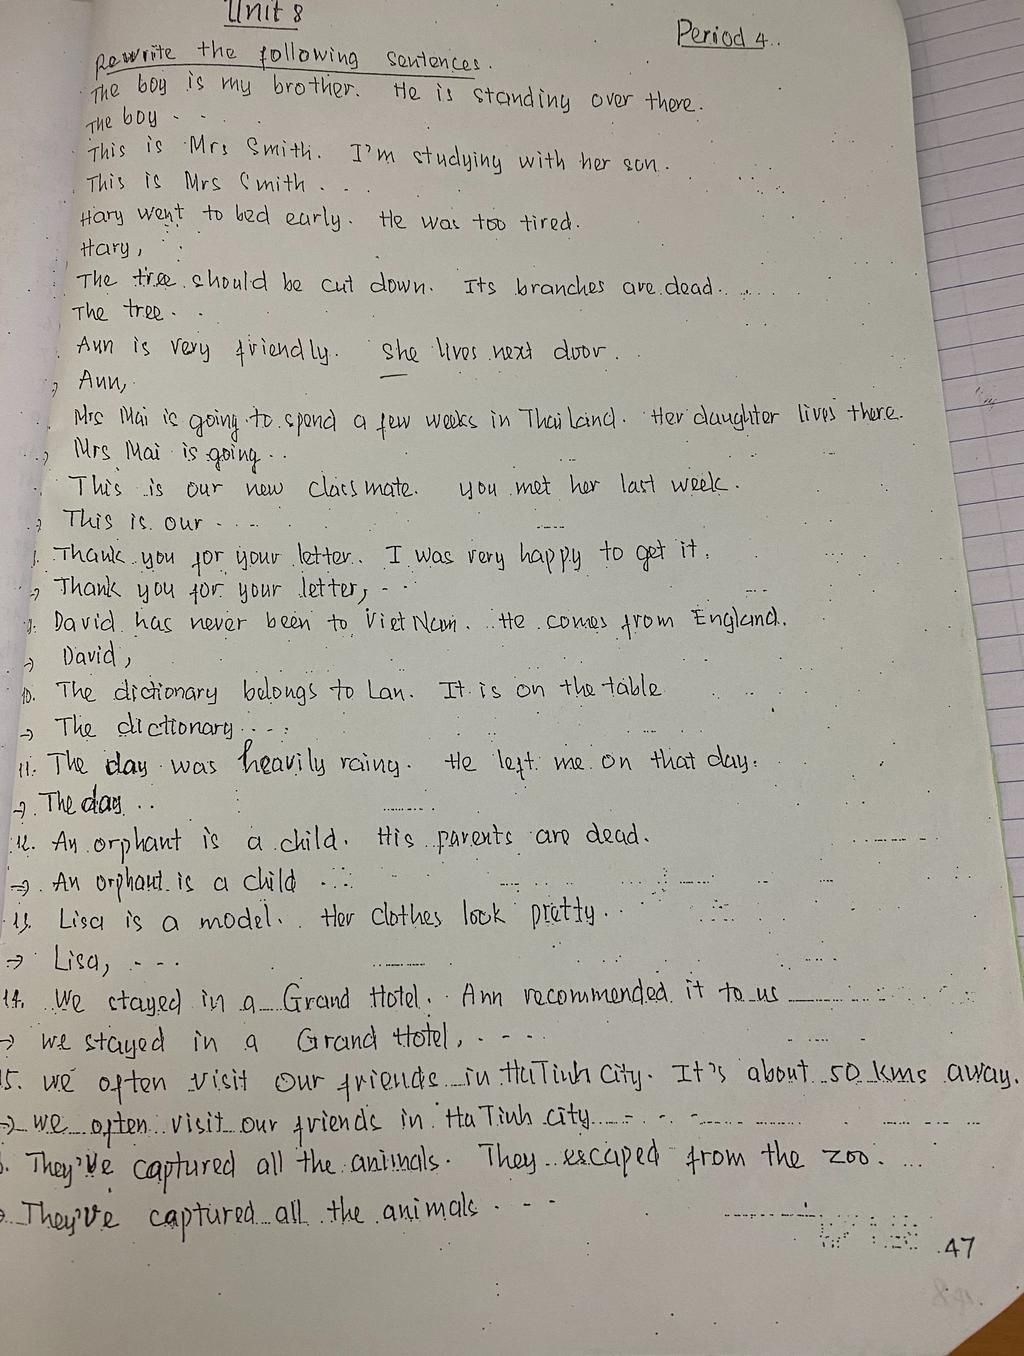 Unit 8
Period 4..
Rewrite the following sentences.
The boy is my brother. He is standing over there.
The boy . . .
This is Mrs Smith. I'm studying with her son.
This is Mrs Smith . . .
Hary went to bed early. He was too tired.
Hary,
The tree should be cut down. Its branches are dead.
The tree . .
Ann is very friendly. She lives next door.
Ann,
Mrs Mai is going to spend a few weeks in Thailand. Her daughter lives there.
Mrs Mai is going . .
This is our new classmate. You met her last week.
This is our . . .
Thank you for your letter. I was very happy to get it.
→ Thank you for your letter, . .
David has never been to Viet Nam. He comes from England.
→ David,
10. The dictionary belongs to Lan. It is on the table
→ The dictionary . . . .
11. The day was heavily raing. He left me on that day.
→ The day . .
12. An orphant is a child. His parents are dead.
→ An orphant is a child . . .
13. Lisa is a model. Her clothes look pretty.
→ Lisa, . . .
14. We stayed in a Grand Hotel. Ann recommended it to us
→ we stayed in a Grand Hotel, . . .
5. we often visit our friends in HaTinh City. It's about 50 kms away.
→ we often visit our friends in Ha Tinh city . . .
They've captured all the animals. They escaped from the zoo.
They've captured all the animals . . .
47